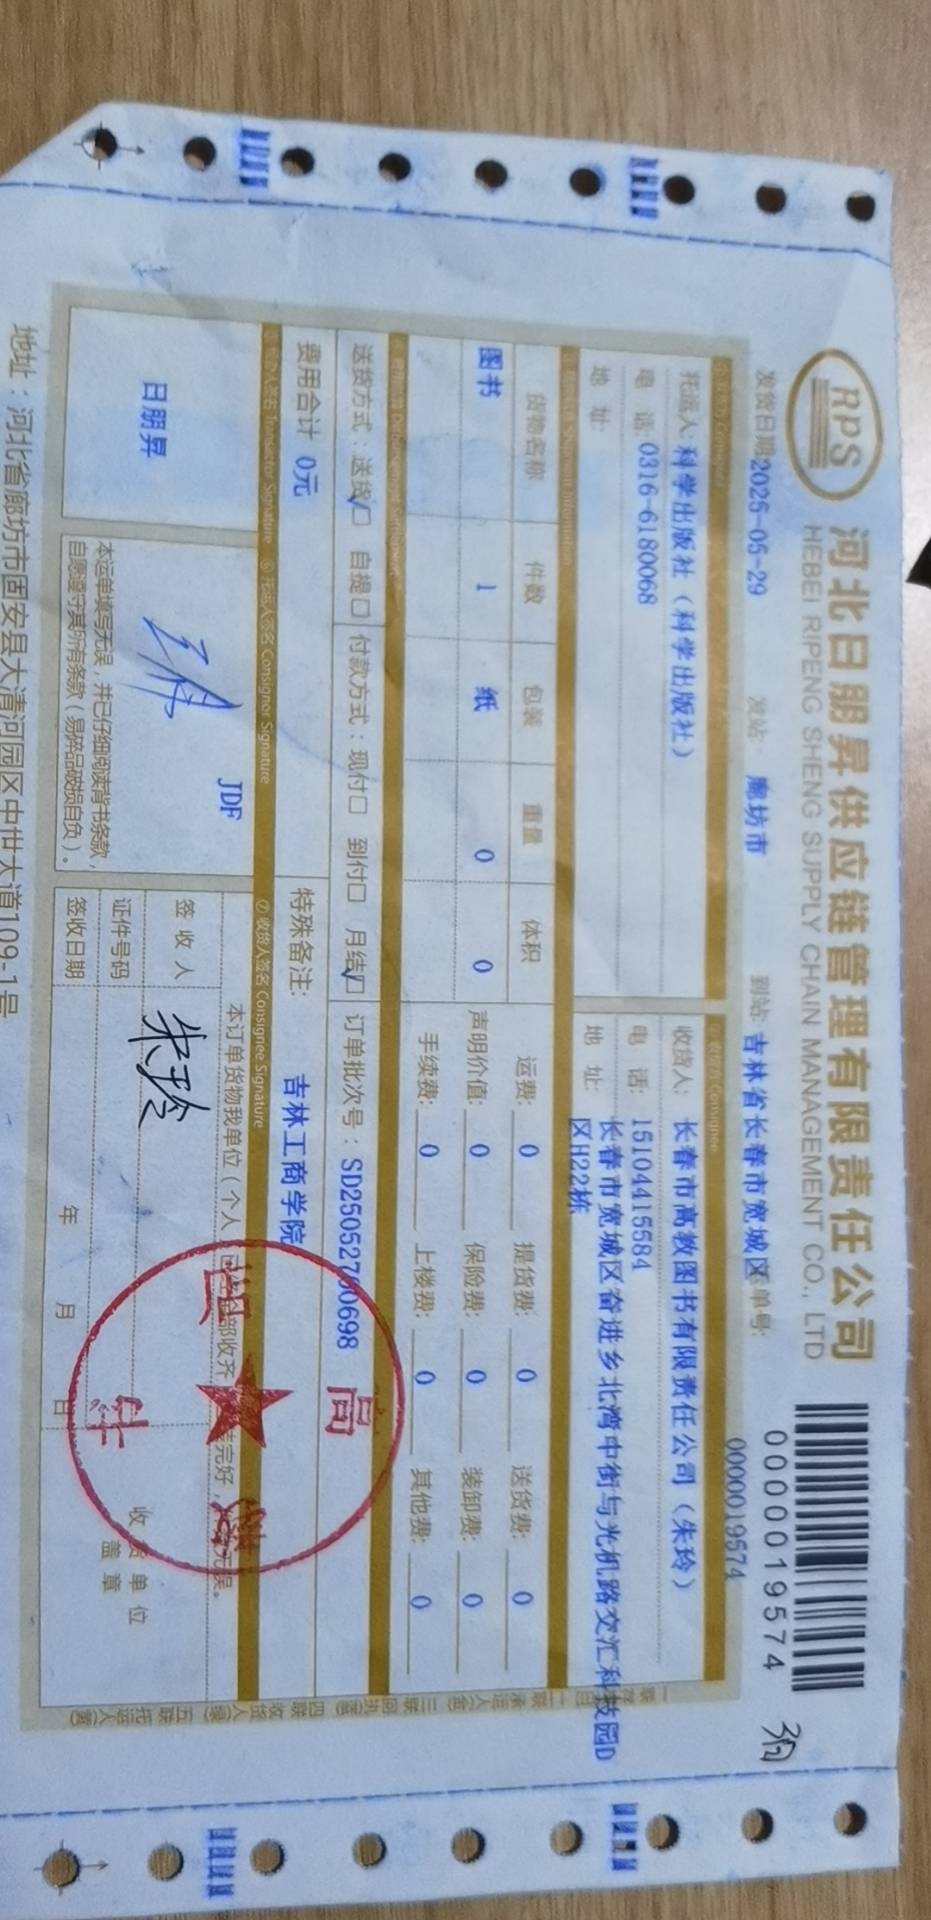 RPS
河北日朋昇供应链管理有限责任公司
HEBEI RIPENG SHENG SUPPLY CHAIN MANAGEMENT CO., LTD
0000019574
发货日期 2025-05-29 发站: 廊坊市 到站: 吉林省长春市宽城区 单号: 0000019574
托运人: 科学出版社（科学出版社）
电 话: 0316-6180068
地 址:
Consignee
收货人: 长春市高教图书有限责任公司（朱玲）
电 话: 15104415584
地 址: 长春市宽城区奋进乡北湾中街与光机路交汇科技园D
区H22栋
货物名称 件数 包装 重量 体积
图书 1 纸 0 0
运费: 0 提货费: 0 送货费: 0
声明价值: 0 保险费: 0 装卸费: 0
手续费: 0 上楼费: 0 其他费: 0
送货方式：送货☑ 自提☐ 付款方式：现付☐ 到付☐ 月结☑ 订单批次号：SD25052700698
费用合计 0元 特殊备注: 吉林工商学院
Signature ⑥ 托运人签名 Consignor Signature ⑦ 收货人签名 Consignee Signature
日朋昇
JDF
本运单填写无误，并已仔细阅读背书条款，
自愿遵守其所有条款（易碎品破损自负）。
本订单货物我单位（个人
部收齐
完好，
无误。
签 收 人 朱玲
证件号码
签收日期 年 月 日
收货单位
盖 章
地址：河北省廊坊市固安县大清河园区中世大道109-1号